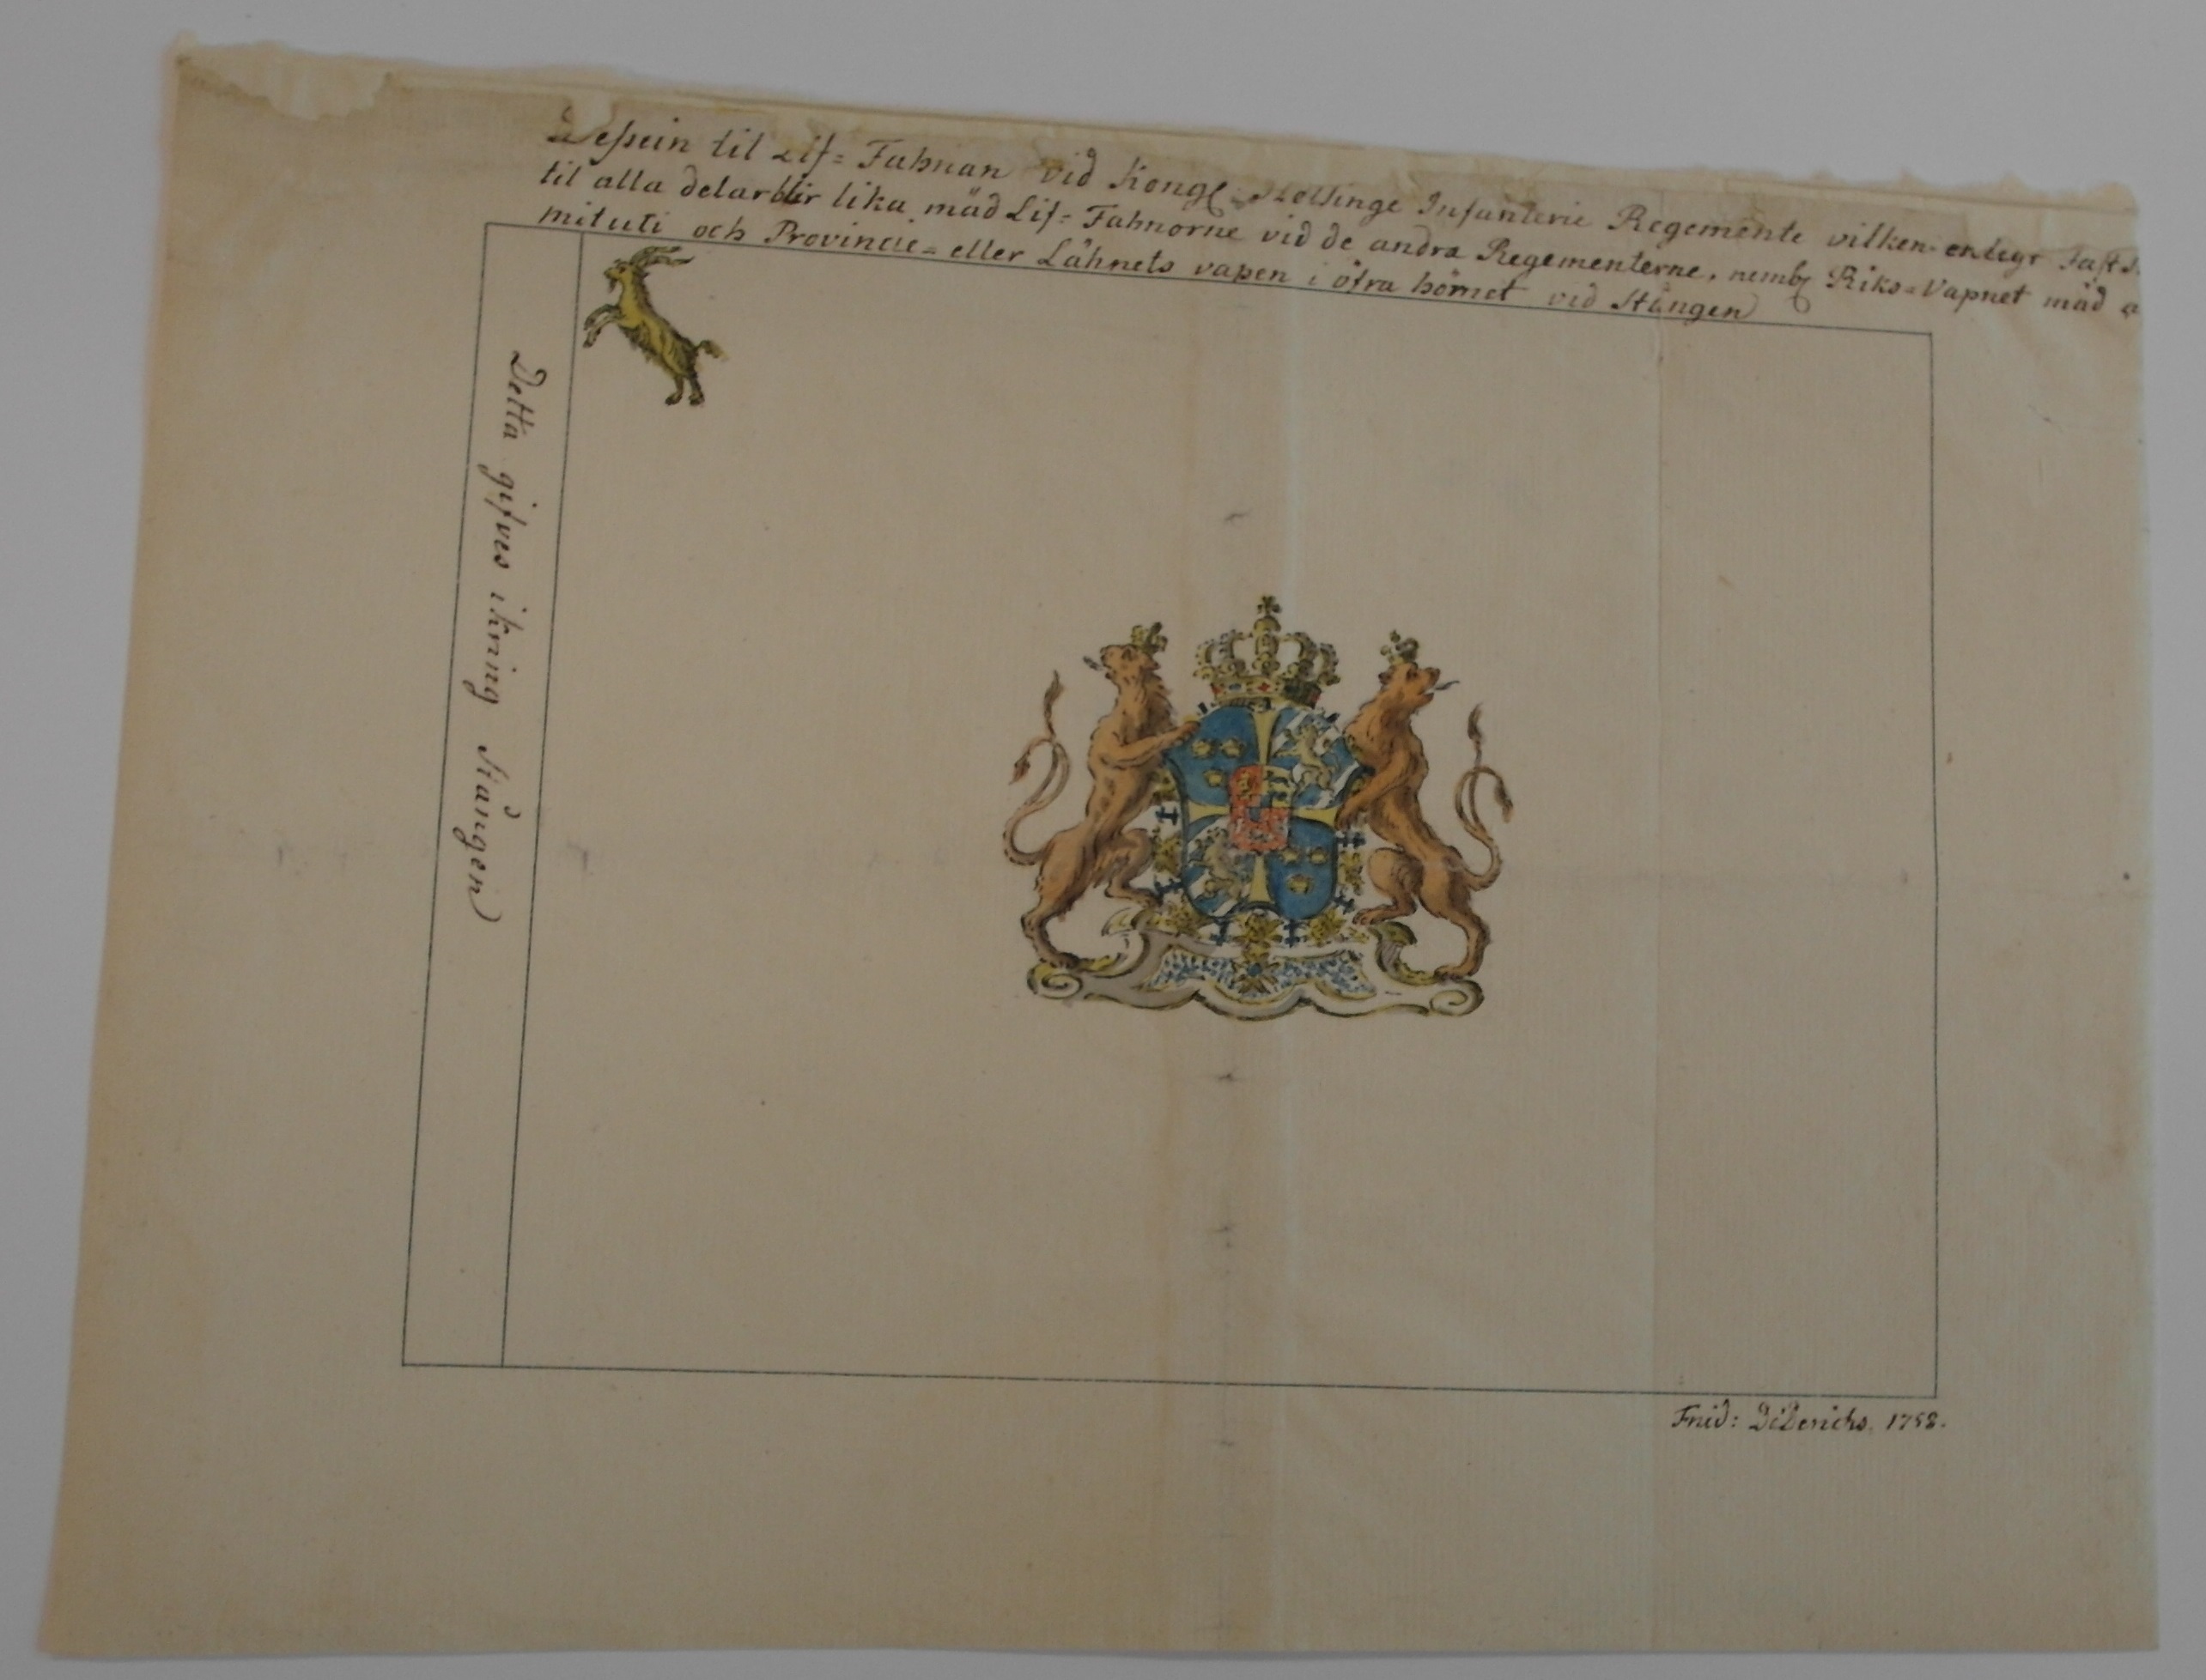 Dessein til Lif= Fahnan vid Kongl Helsinge Infanterie Regemente vilken enligt
til alla delar blir lika mäd Lif= Fahnorne vid de andra Regementerne, nembl Riks=Vapnet mäd
och Provincie= eller Lähnets vapen i öfra hörnet vid Stången
Detta gifves ikring Stången
Frid: Diderichs. 1758.